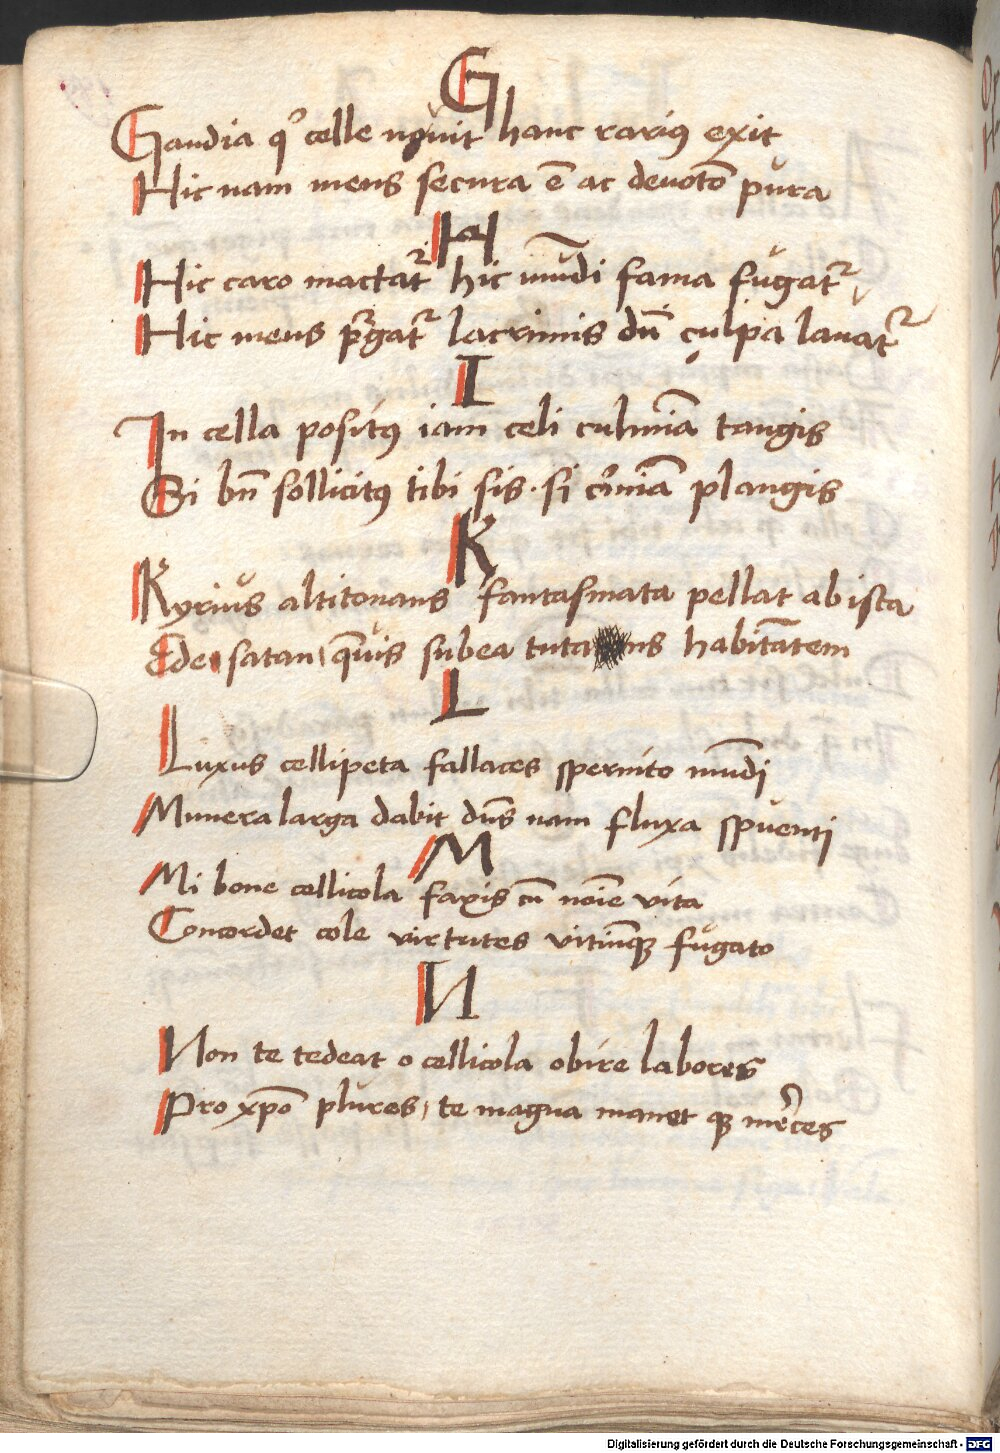 G
Gaudia qͥ celle nouit hanc rariꝰ exit
Hic nam mens secura ē ac deuotōe pura
H
Hic caro mactat᷑ hic mūdi fama fugat᷑
Hic mens pͥgat᷑ lacrimis dū culpa lauat᷑
I
In cella positꝰ iam celi culmīa tangis
Si bn̄ sollicitꝰ tibi sis · si cͥmīa plangis
K
Kyrius altitonans fantasmata pellat ab ista
Ede satan qͣuis sub ea tuta ns habitātem
L
Luxus cellipeta fallaces spernito mūdi
Munera larga dabit dn̄s nam fluxa spuenti
M
Mi bone cellicola faxis cū noīe vita
Concordet cole virtutes vitiūqꝫ fugato
N
Non te tedeat o cellicola obire labores
Pro xp̄o plures, te magna manet qꝫ mēces
Digitalisierung gefördert durch die Deutsche Forschungsgemeinschaft - DFG